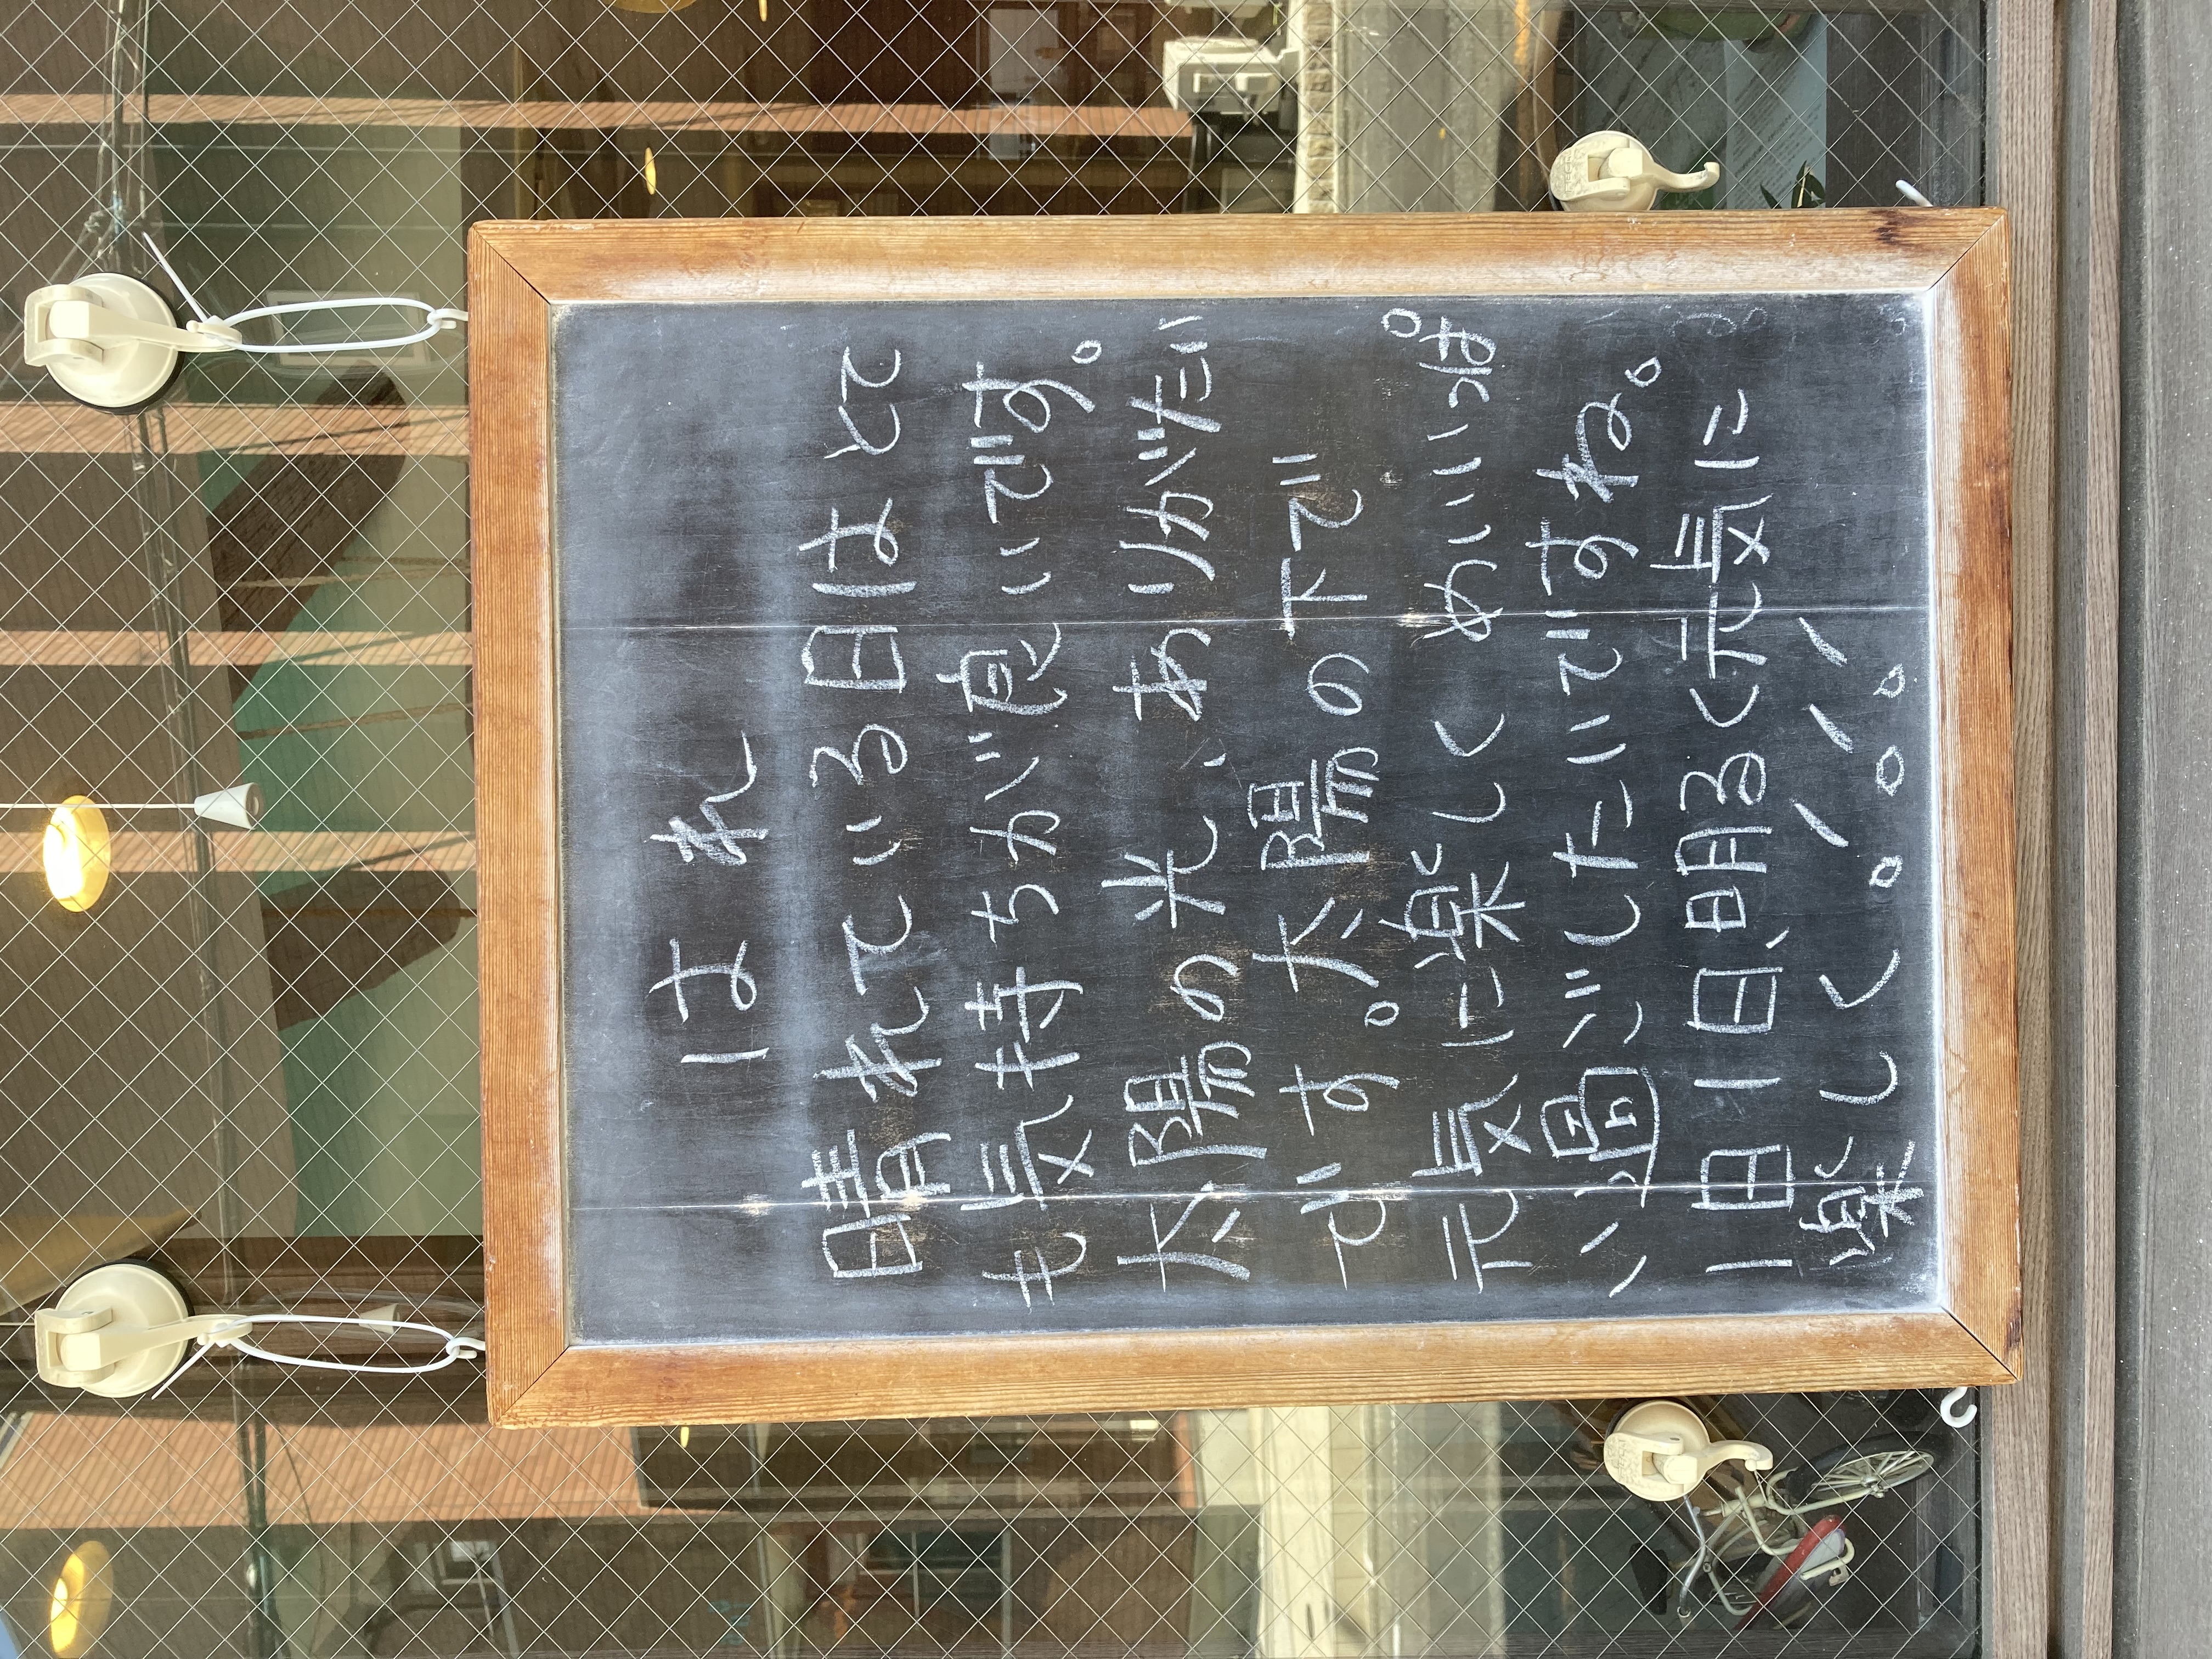 はれ
晴れている日はとて
も気持ちが良いです。
太陽の光、ありがたい
です。太陽の下で
元気に楽しくめいいっぱ
い過ごしたいですね。
一日一日、明るく元気に
楽しく!!!